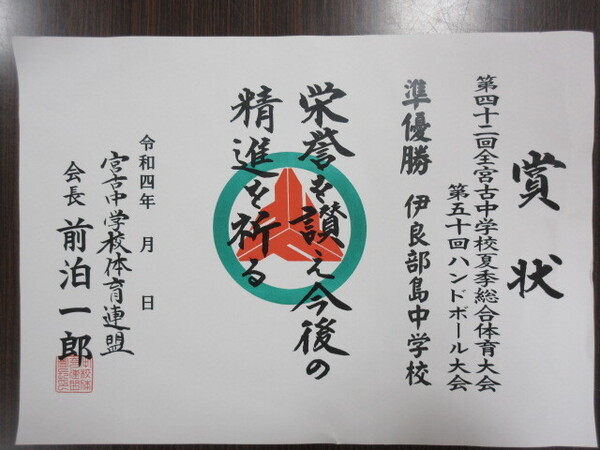 賞状
第四十二回全宮古中学校夏季総合体育大会
第五十回ハンドボール大会
準優勝 伊良部島中学校
栄誉を讃え今後の
精進を祈る
令和四年 月 日
宮古中学校体育連盟
会長 前泊一郎